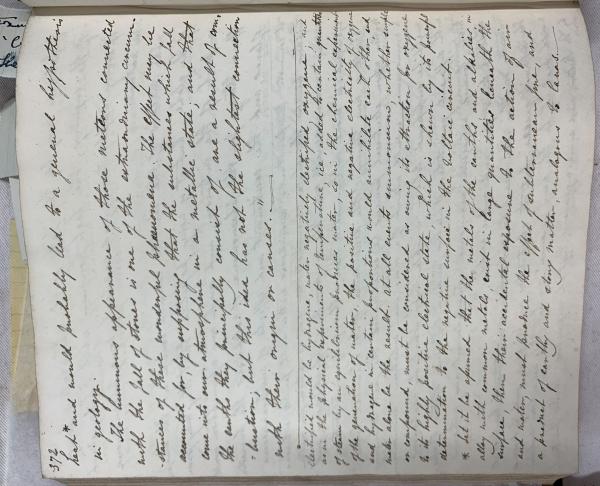 372
heat* and would probably lead to a general hypothesis
in geology.
The luminous appearance of those meteors connected
with the fall of stones is one of the extraordinary circum-
stances of these wonderful phaenomena. The effect may be
accounted for, by supposing that the substances which fall
come into our atmosphere in a metallic state; and that
the earths they principally consist of are a result of com-
-bustion; but this idea has not the slightest connection
with their origin or causes."
electrified would be hydrogene, water negatively electrified oxygene; and
as in the physical of temperature, ice added to certain quantities
of steam by an equilibrium produces water, so in the chemical experiment
of the generation of water, the positive and negative electricity of oxygene
and hydrogene in certain proportions would annihilate each other, and
water alone be the result. At all events ammonium, whether simple
or compound, must be considered as owing its attraction for oxygene
to its highly positive electrical state which is shewn by its powerful
determination to the negative surface in the Voltaic circuit.
* Let it be assumed that the metals of the earths and alkalies in
alloy with common metals exist in large quantities beneath the
surface, then their accidental exposure to the action of air
and water, must produce the effect of subterranean fire, and
a product of earthy and stony matter, analogous to lavas.